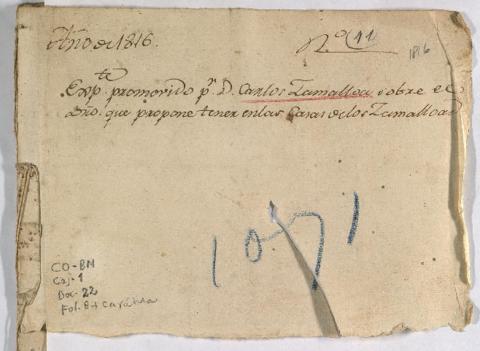 Año de 1816.
N.º 11
1816
Exp.te promovido p.r D. Carlos Zamalloa sobre el
dño. que propone tener en las Casas de los Zamalloas
1071
CO-BN
Caj-1
Doc-22
Fol. 8+ carátula